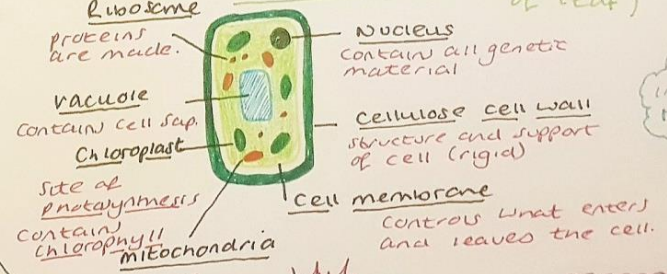 Ribosome
proteins
are made.
Vacuole
contain cell sap.
Chloroplast
site of
photosynthesis
contain
chlorophyll
mitochondria
Nucleus
contain all genetic
material
Cellulose cell wall
structure and support
of cell (rigid)
Cell membrane
controls what enters
and leaves the cell.
of leaf)